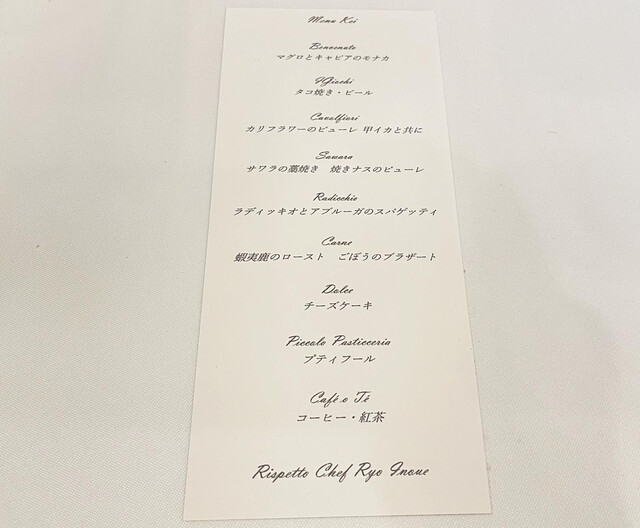 Menu Kei
Benvenuto
マグロとキャビアのモナカ
I Giochi
タコ焼き・ビール
Cavolfiori
カリフラワーのピューレ 甲イカと共に
Sawara
サワラの藁焼き 焼きナスのピューレ
Radicchio
ラディッキオとアブルーガのスパゲッティ
Carne
蝦夷鹿のロースト ごぼうのブラザート
Dolce
チーズケーキ
Piccola Pasticceria
プティフール
Café o Té
コーヒー・紅茶
Rispetto Chef Ryo Inoue